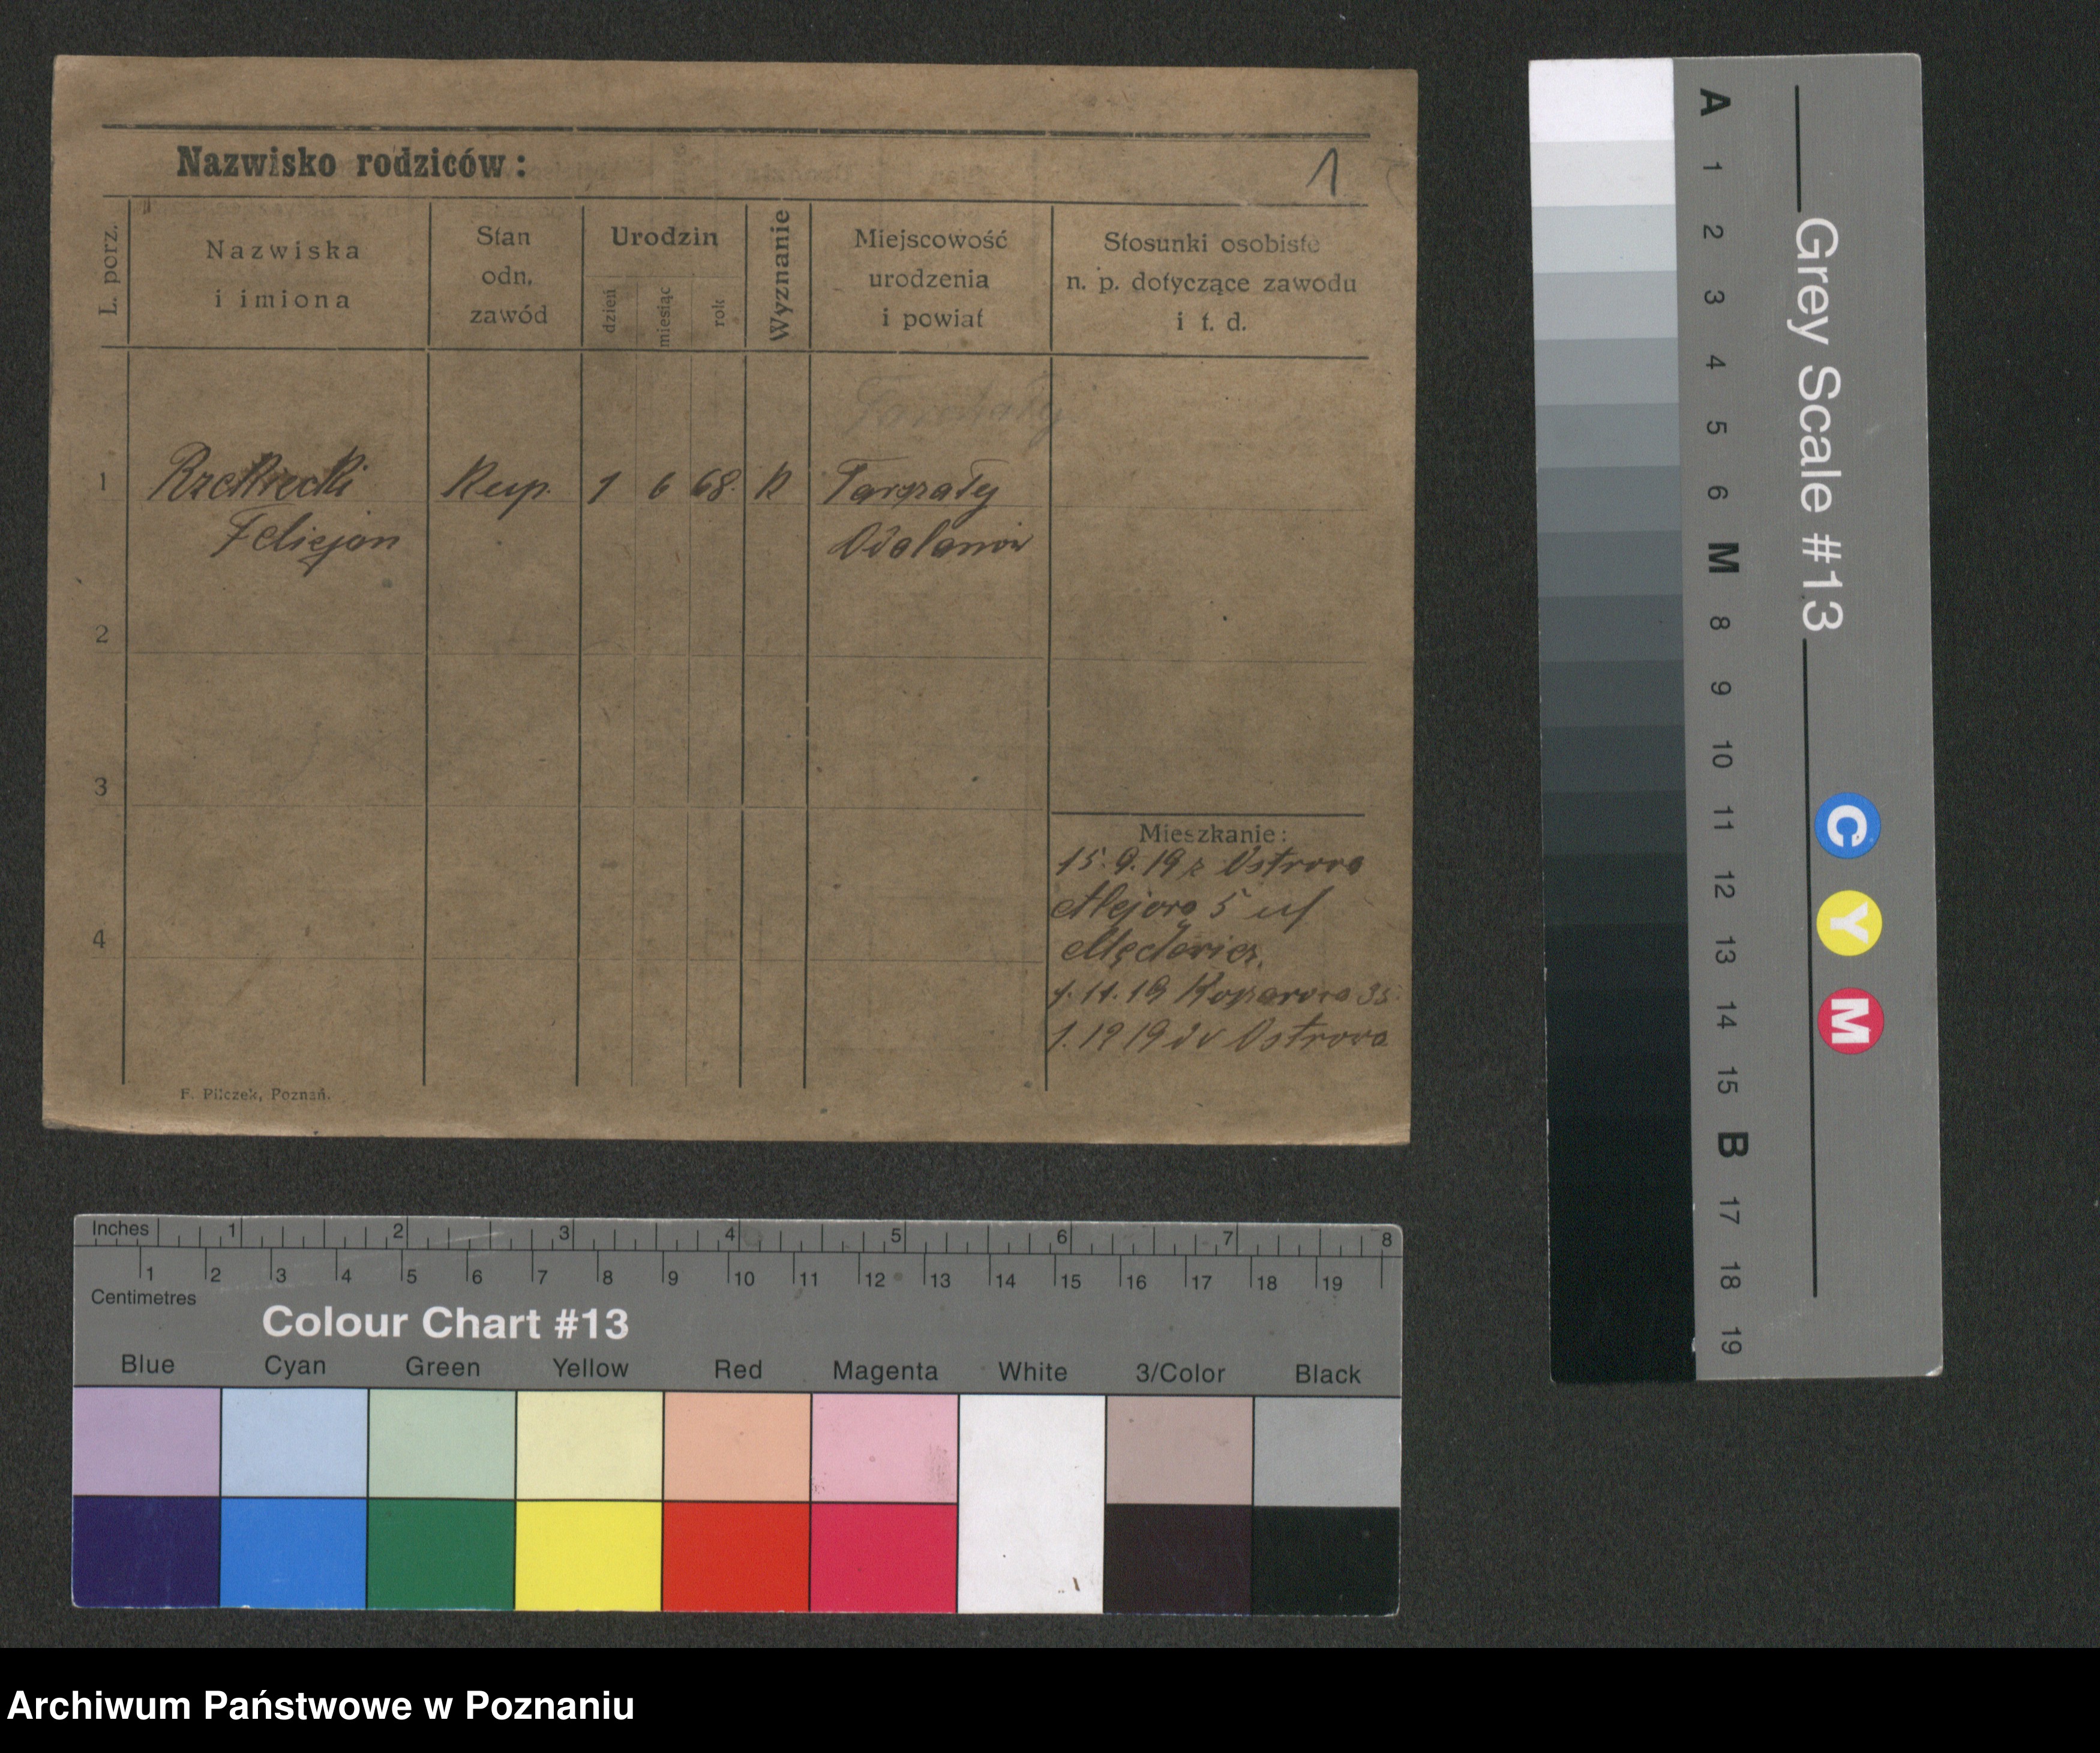 Nazwisko rodziców:
1
L. porz.
Nazwiska
i imiona
Stan
odn.
zawód
Urodzin
dzień
miesiąc
rok
Wyznanie
Miejscowość
urodzenia
i powiat
Stosunki osobiste
n. p. dotyczące zawodu
i t. d.
1
Felicjan
Kup.
1 6 68.
K
Odolanów
2
3
4
Mieszkanie:
15.9.19 z Ostrowa
5
1.11.19 35
Ostrowa
F. Pilczek, Poznań.
Inches 1 2 3 4 5 6 7 8
1 2 3 4 5 6 7 8 9 10 11 12 13 14 15 16 17 18 19
Centimetres
Colour Chart #13
Blue Cyan Green Yellow Red Magenta White 3/Color Black
Grey Scale #13
A 1 2 3 4 5 6 M 8 9 10 11 12 13 14 15 B 17 18 19
C Y M
Archiwum Państwowe w Poznaniu